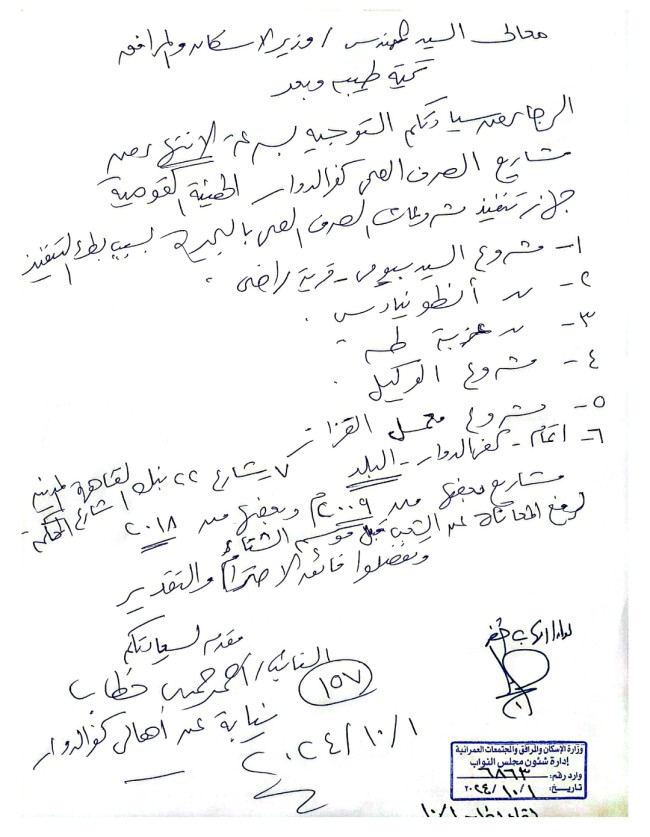 معالى السيد المهندس / وزير الاسكان والمرافق
تحية طيبه وبعد
الرجا من سيادتكم التوجيه بسرعة الانتهاء من
مشاريع الصرف الصحى كفرالدوار الهيئة القومية
جهاز تنفيذ مشروعات الصرف الصحى بالبحيرة بسبب بطء التنفيذ
١- مشروع السيد بيومى - قرية راضى .
٢- س أنطونيادس .
٣- س عزبة طه
٤- مشروع الوكيل .
٥- مشروع معمل القزاز
٦- اتمام - كفرالدوار - البلد ٧ شارع ٢٢ بنك القاهرة
شارع المحكمة
مشاريع بعضها من ٢٠٠٩م وبعضها من ٢٠١٨
لرفع المعاناة عن الشعب قبل موسم الشتاء
وتفضلوا فائق الاحترام والتقدير
مقدم لسيادتكم
النائب / احمد حميد خطاب
١٥٧
نيابة عن أهالى كفرالدوار
٢٠٢٤/١٠/١
لواء / ايهاب خضر
وزارة الإسكان والمرافق والمجتمعات العمرانية
إدارة شئون مجلس النواب
وارد رقم: ٦٨٦٣
تاريخ: ٢٠٢٤/١٠/١
١٠/١